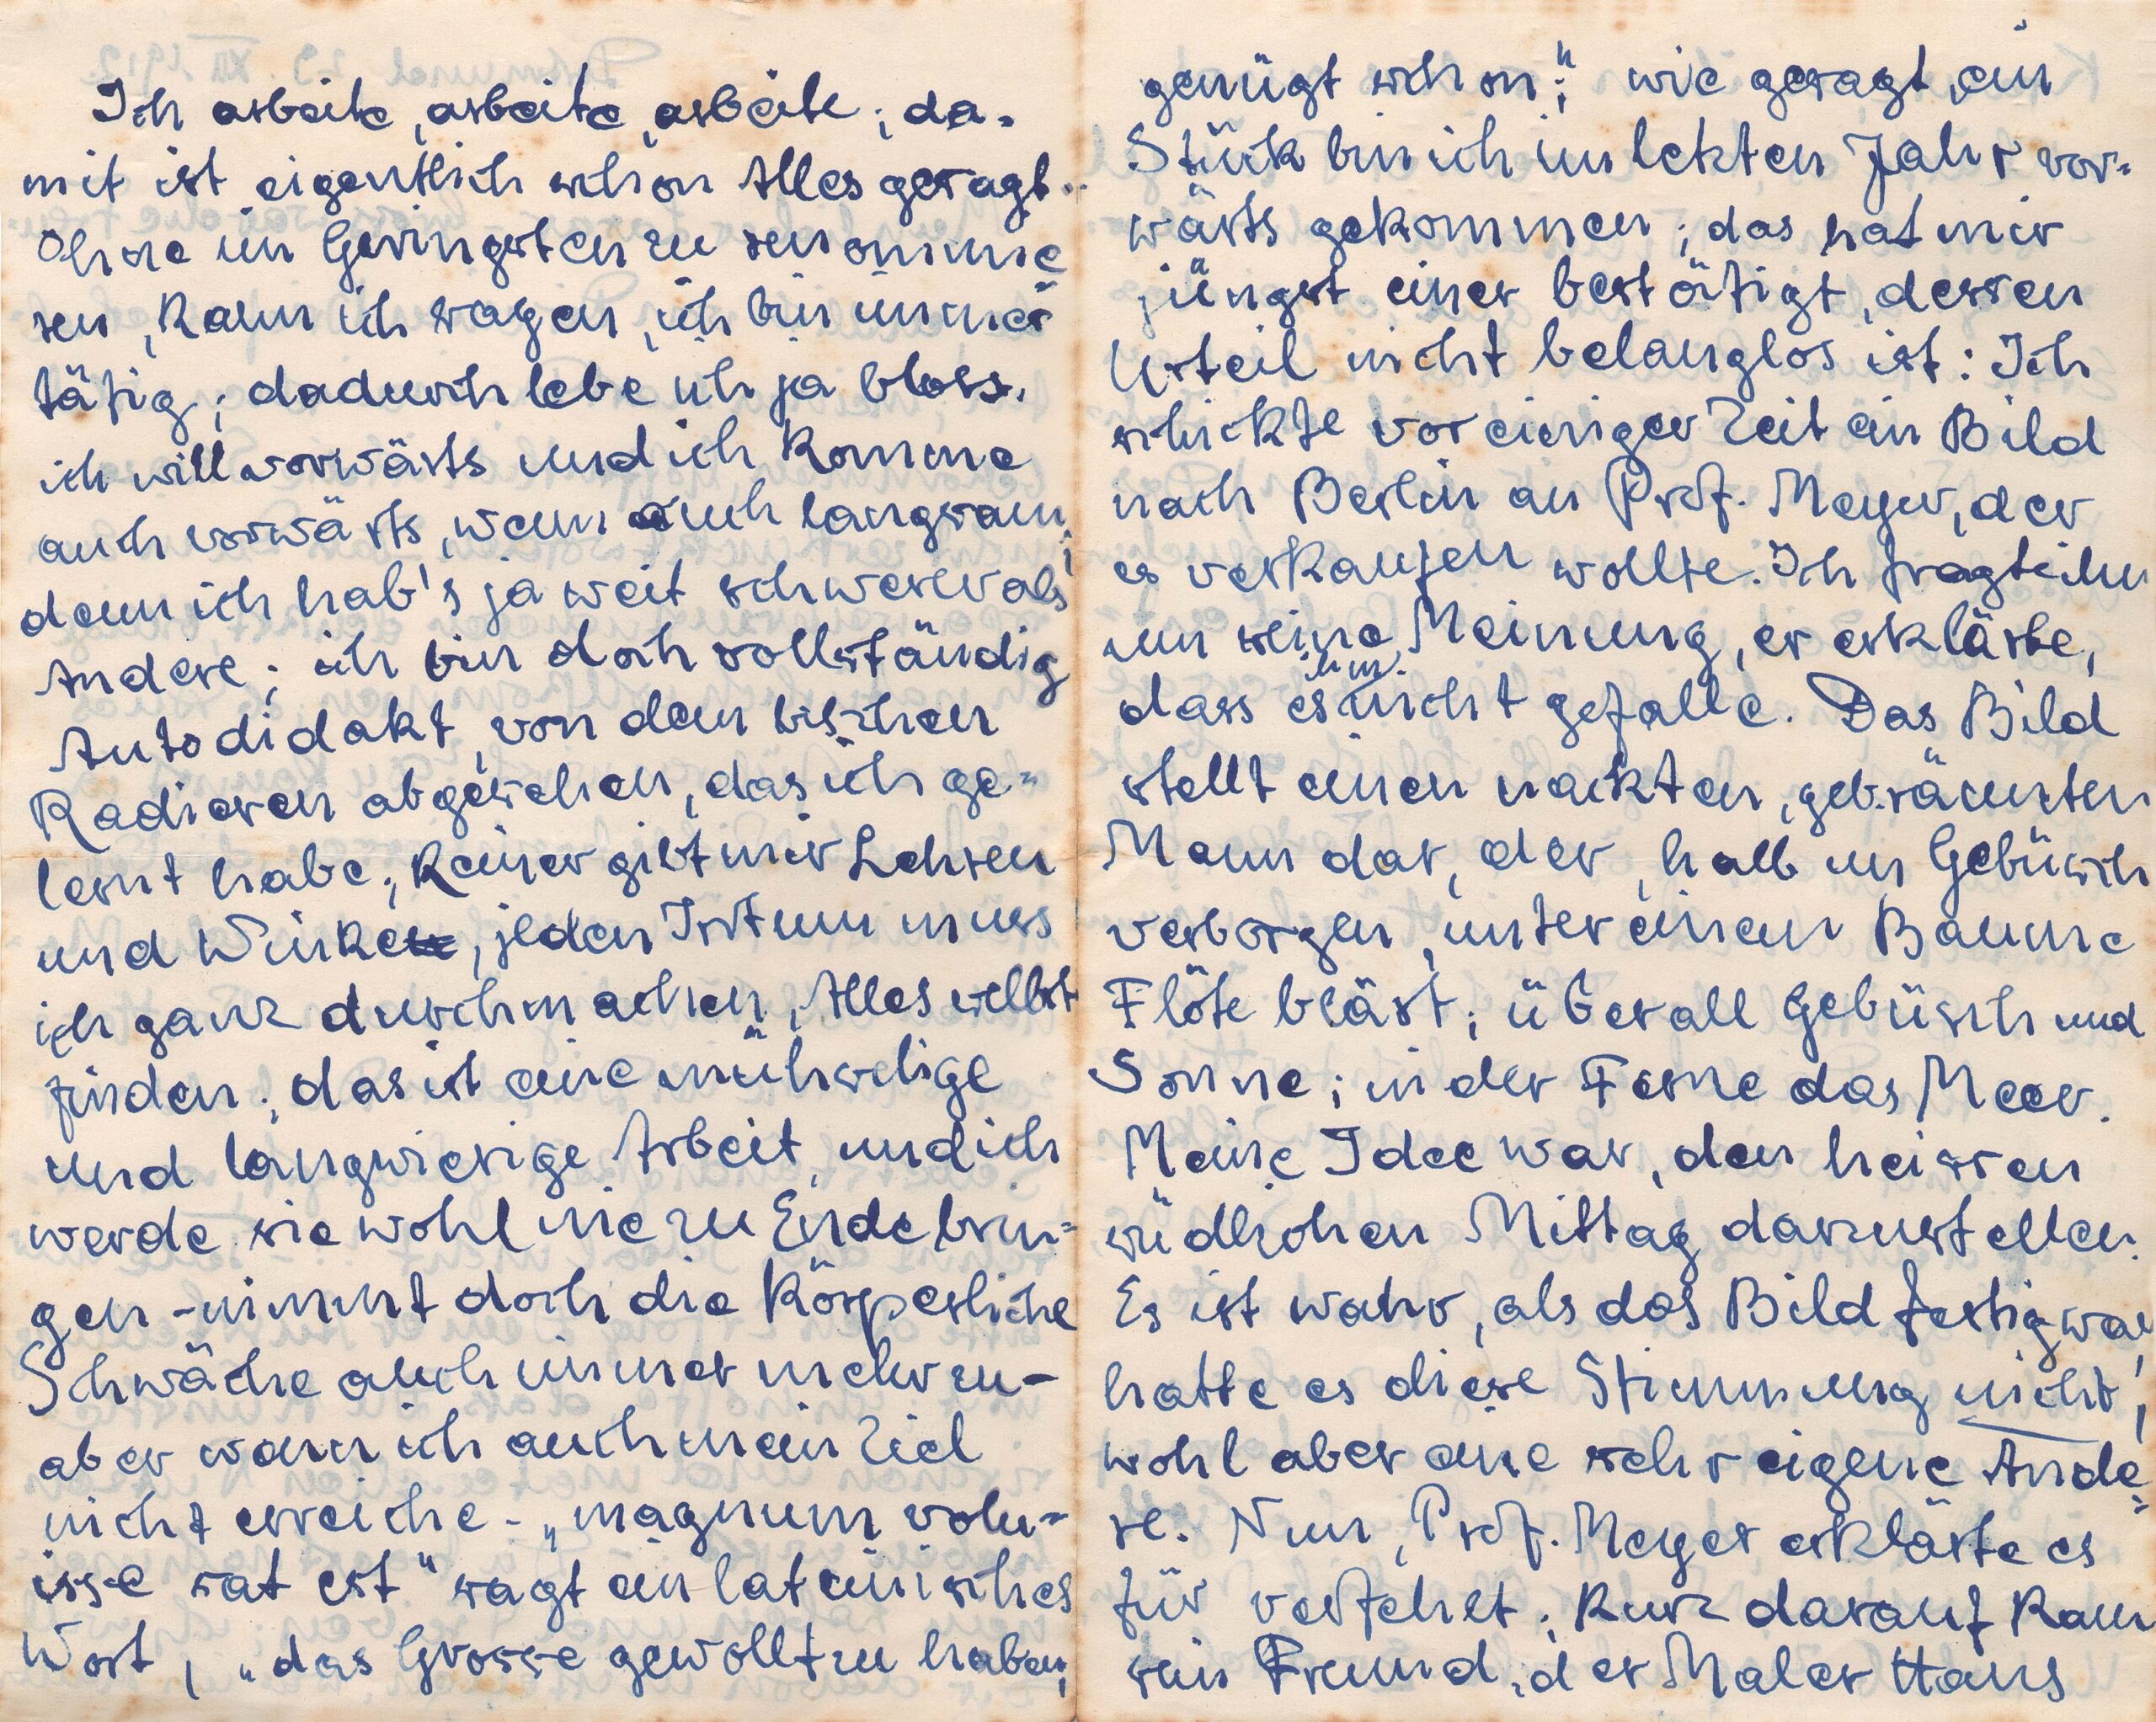 Ich arbeite, arbeite, arbeite; da-
mit ist eigentlich schon Alles gesagt.
Ohne im Geringsten zu renommie
ren, kann ich sagen, ich bin immer
tätig; dadurch lebe ich ja bloss.
ich will vorwärts und ich komme
auch vorwärts, wenn auch langsam;
denn ich hab's ja weit schwerer als
Andere; ich bin doch vollständig
Autodidakt, von dem bischen
Radieren abgesehen, das ich ge-
lernt habe; Keiner gibt mir Lehren
und Winke, jeden Irrtum muss
ich ganz durchmachen, Alles selbst
finden; das ist eine mühselige
und langwierige Arbeit, und ich
werde sie wohl nie zu Ende brin-
gen - nimmt doch die körperliche
Schwäche auch immer mehr zu -
aber wenn ich auch mein Ziel
nicht erreiche - „magnum volu-
isse sat est" sagt ein lateinisches
Wort, „das Grosse gewollt zu haben,
genügt schon"; wie gesagt, ein
Stück bin ich im letzten Jahr vor-
wärts gekommen; das hat mir
jüngst einer bestätigt, dessen
Urteil nicht belanglos ist: Ich
schickte vor einiger Zeit ein Bild
nach Berlin an Prof. Meyer, der
es verkaufen wollte. Ich fragte ihn
um seine Meinung, er erklärte,
dass es ihm nicht gefalle. Das Bild
stellt einen nackten, gebräunten
Mann dar, der, halb im Gebüsch
verborgen, unter einem Baume
Flöte bläst; überall Gebüsch und
Sonne; in der Ferne das Meer.
Meine Idee war, den heissen
südlichen Mittag darzustellen.
Es ist wahr, als das Bild fertig war,
hatte es diese Stimmung nicht,
wohl aber eine sehr eigene Ande-
re. Nun, Prof. Meyer erklärte es
für verfehlt; kurz darauf kam
sein Freund, der Maler Hans